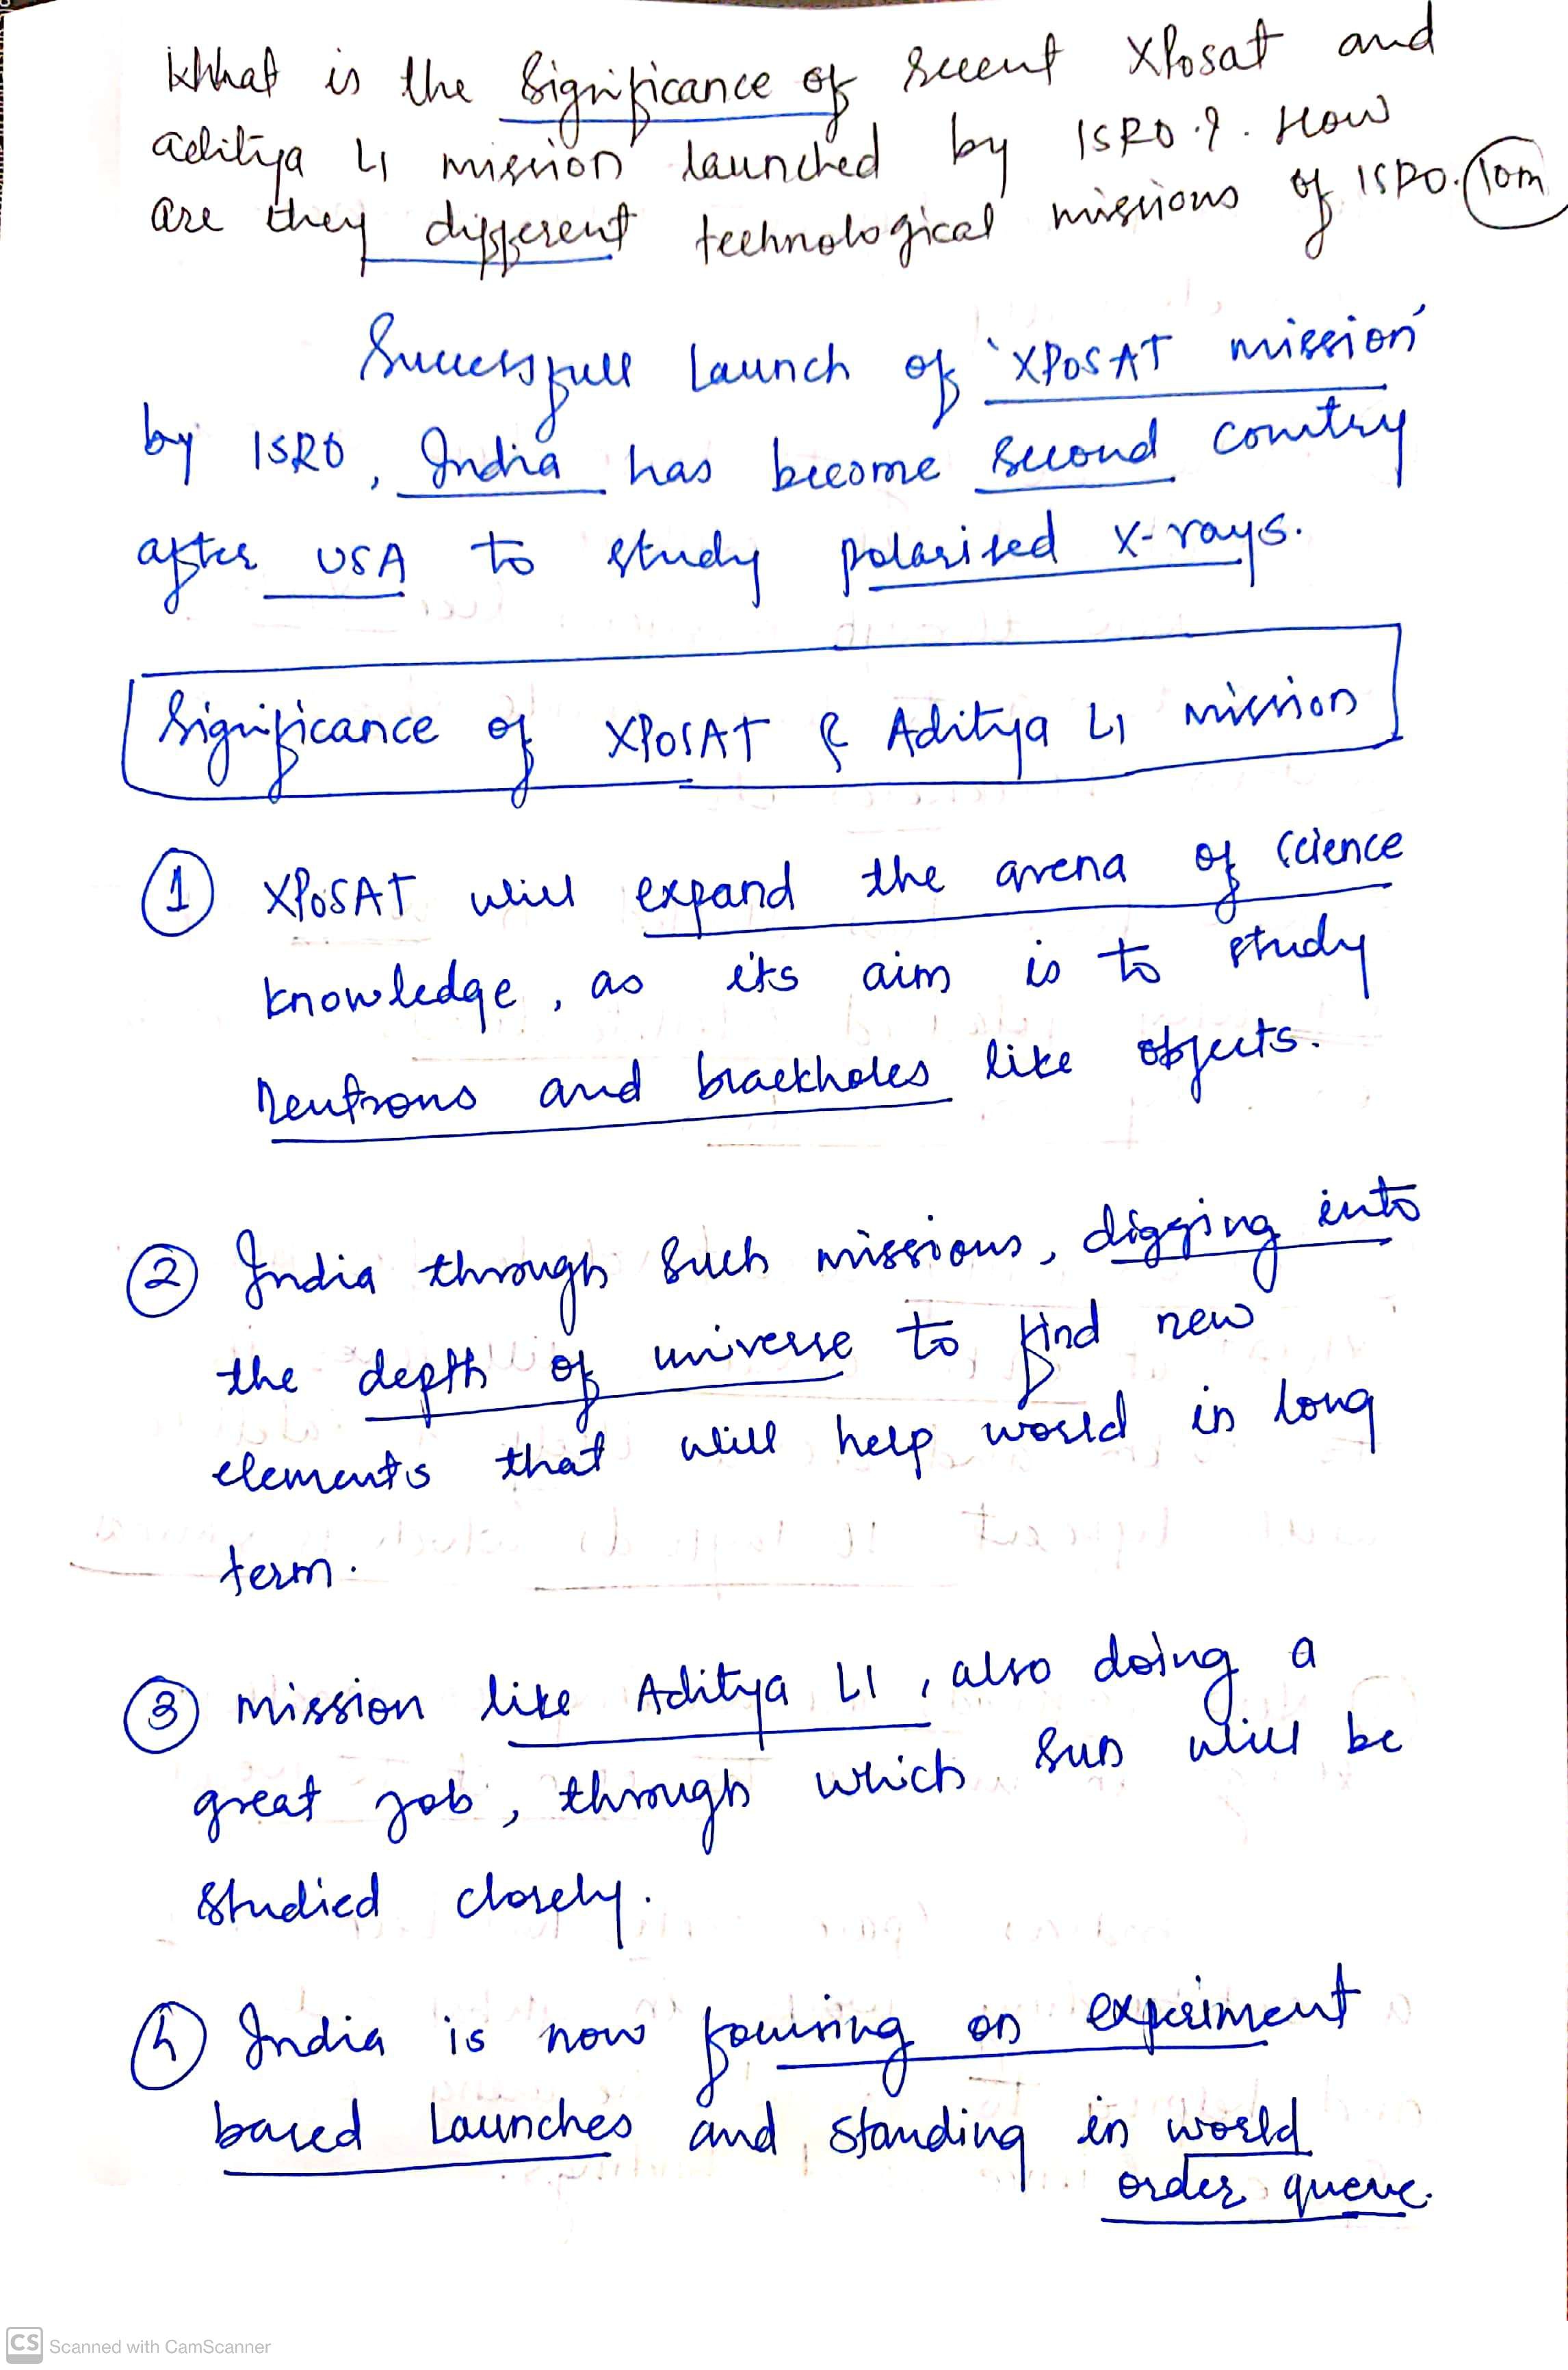 What is the significance of recent XPosat and
aditya L1 mission launched by ISRO.?. How
are they different technological missions of ISRO. 10m
Successfull launch of 'XPOSAT mission'
by ISRO, India has become second country
after USA to study polarised X-rays.
Significance of XPOSAT & Aditya L1 mission
1 XPOSAT will expand the arena of science
knowledge, as its aim is to study
Neutrons and blackholes like objects.
2 India through such missions, digging into
the depth of universe to find new
elements that will help world in long
term.
3 Mission like Aditya L1, also doing a
great job, through which sun will be
studied closely.
4 India is now focusing on experiment
based launches and standing in world
order queue.
CS Scanned with CamScanner